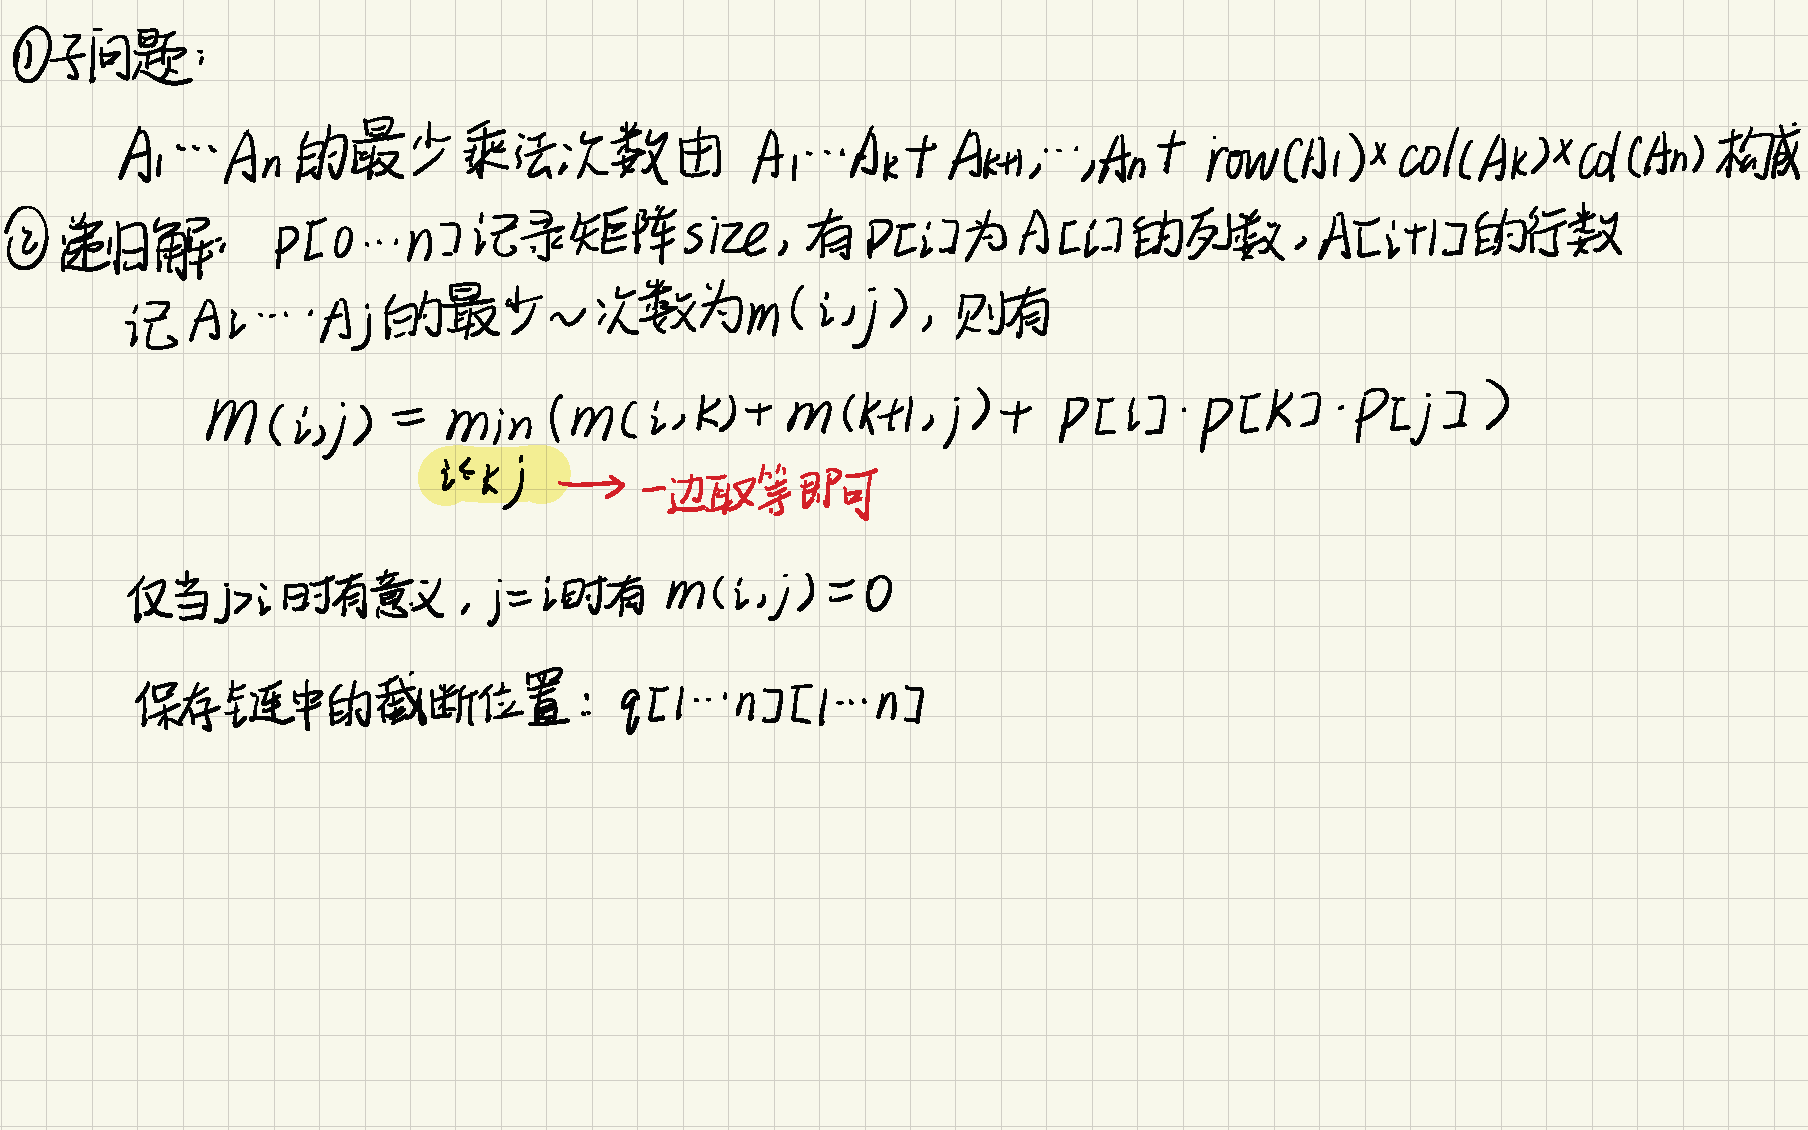 ①子问题:
A₁…Aₙ的最少乘法次数由 A₁…Aₖ+Aₖ₊₁,…,Aₙ+ row(A₁)×col(Aₖ)×col(Aₙ)构成
②递归解: p[0…n]记录矩阵size,有p[i]为A[i]的列数,A[i+1]的行数
记Aᵢ…Aⱼ的最少~次数为m(i,j),则有
m(i,j)=min(m(i,k)+m(k+1,j)+p[i]·p[k]·p[j])
i≤k j → 一边取等即可
仅当j>i时有意义,j=i时有 m(i,j)=0
保存链中的截断位置: q[1…n][1…n]